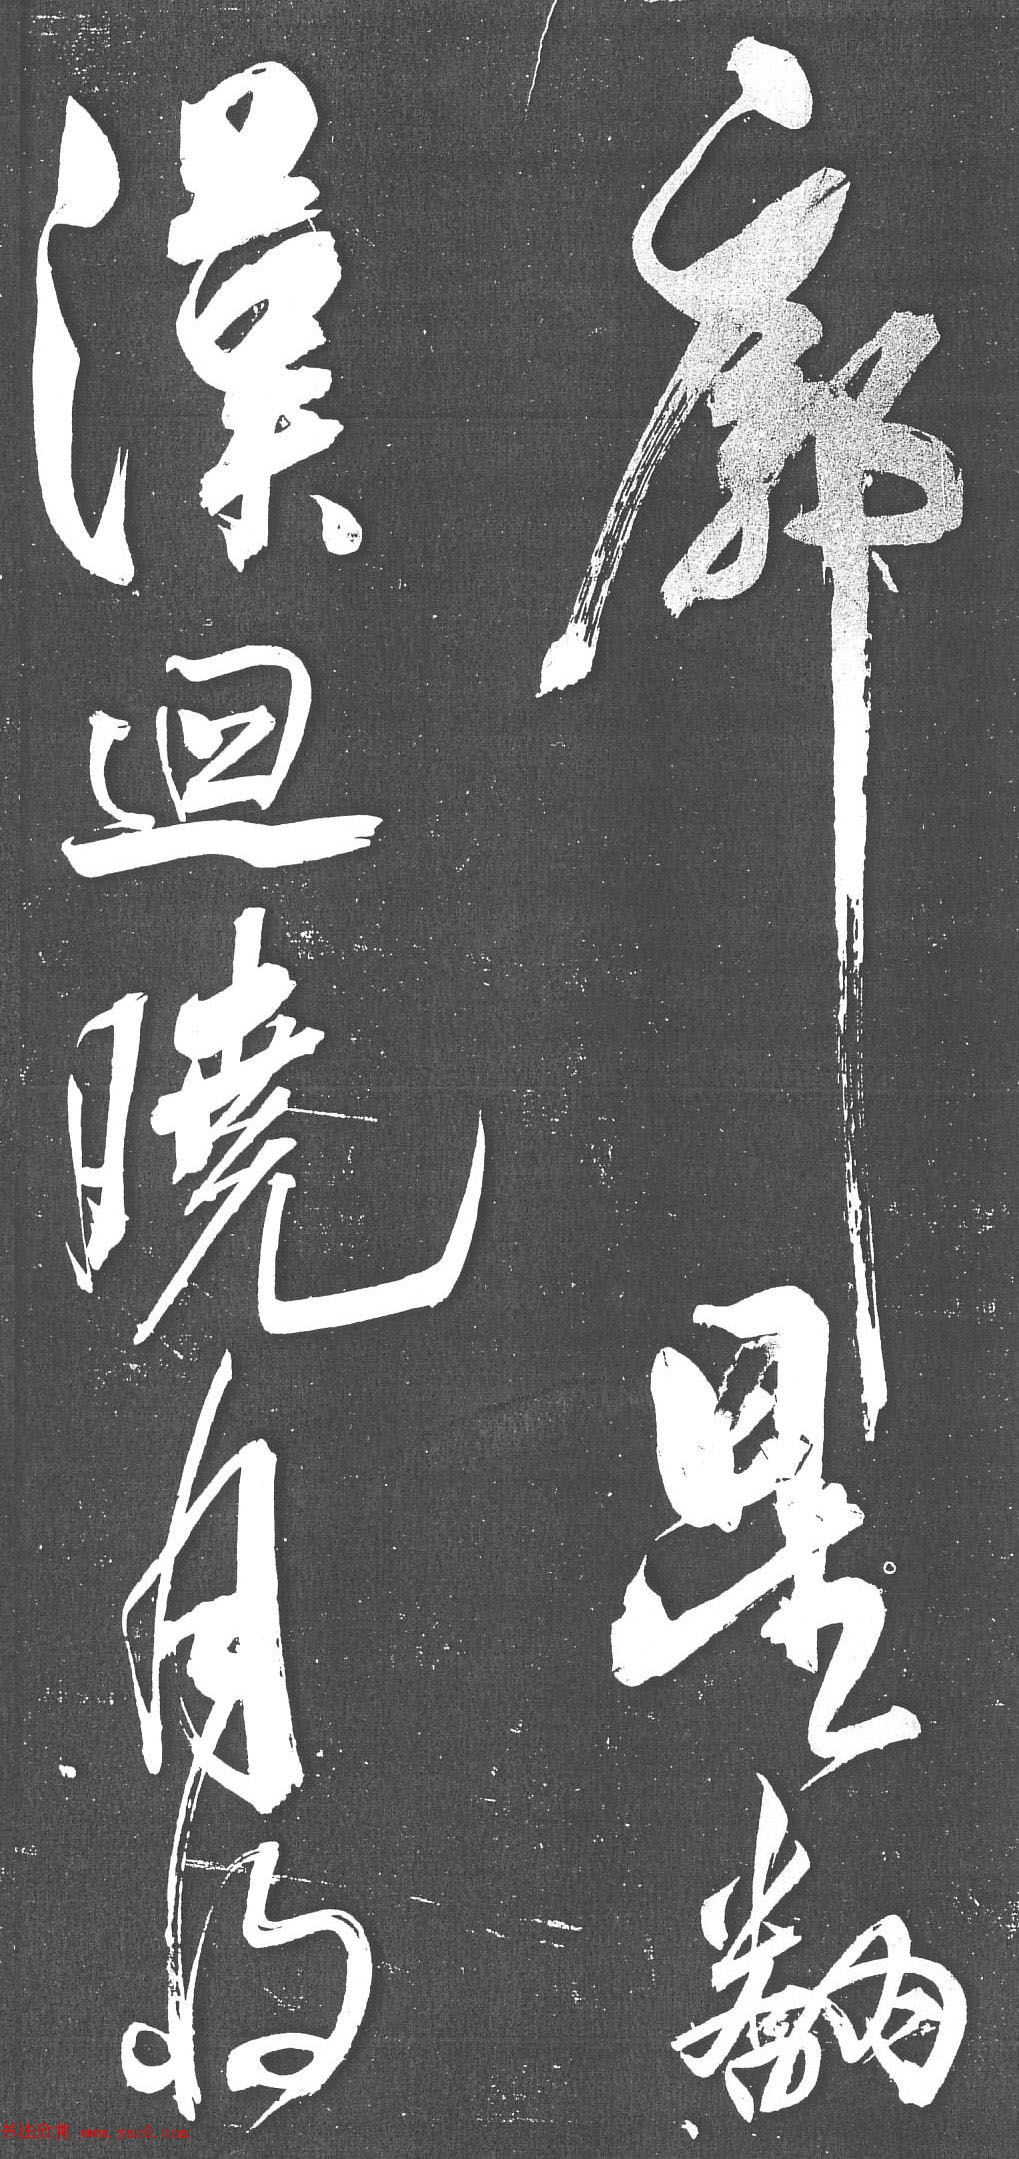 廓星翻
漢迴曉月將
书法欣赏 www.yac8.com